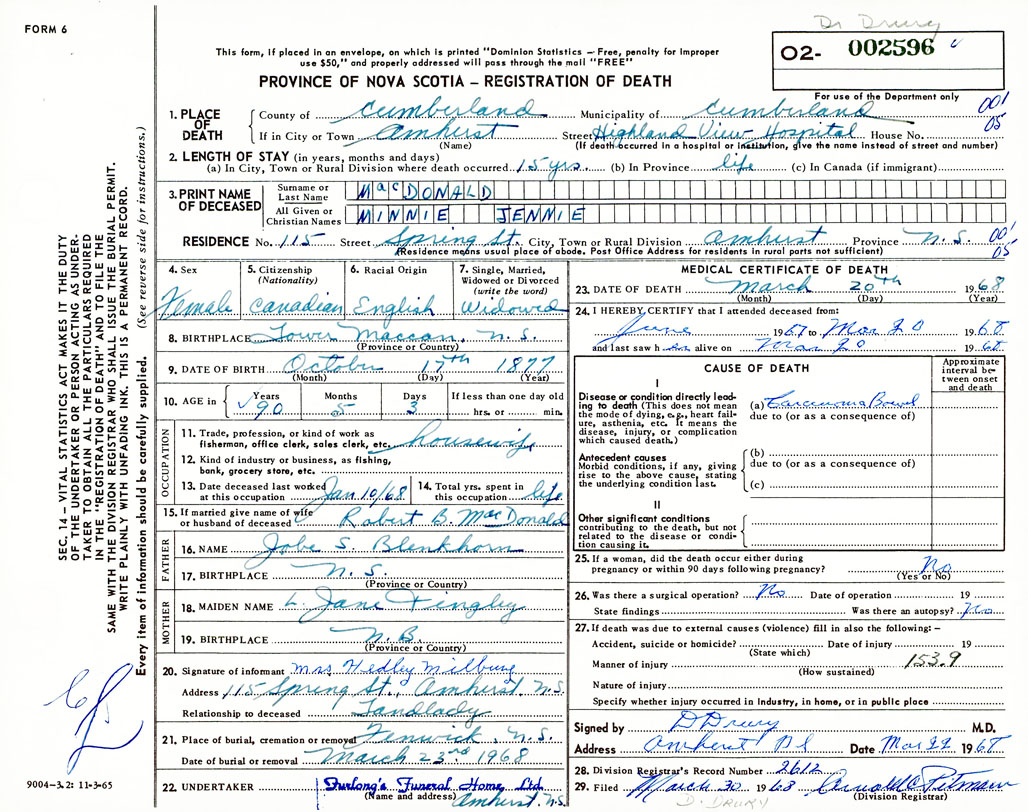 FORM 6
Dr Drury
This form, if placed in an envelope, on which is printed "Dominion Statistics – Free, penalty for improper
use $50," and properly addressed will pass through the mail "FREE"
O2- 002596
PROVINCE OF NOVA SCOTIA – REGISTRATION OF DEATH
For use of the Department only
1. PLACE OF DEATH
County of Cumberland Municipality of Cumberland 001
If in City or Town Amhurst Street Highland View Hospital House No. 05
(Name) (If death occurred in a hospital or institution, give the name instead of street and number)
2. LENGTH OF STAY (in years, months and days)
(a) In City, Town or Rural Division where death occurred 15 yrs. (b) In Province life (c) In Canada (if immigrant)
3. PRINT NAME OF DECEASED
Surname or Last Name MacDONALD
All Given or Christian Names MINNIE JENNIE
RESIDENCE No. 115 Street Spring St. City, Town or Rural Division Amhurst Province N.S. 001
(Residence means usual place of abode. Post Office Address for residents in rural parts not sufficient) 05
4. Sex Female
5. Citizenship (Nationality) Canadian
6. Racial Origin English
7. Single, Married, Widowed or Divorced (write the word) Widowed
8. BIRTHPLACE Lower Maccan, N.S.
(Province or Country)
9. DATE OF BIRTH October 17th 1877
(Month) (Day) (Year)
10. AGE in Years 90 Months 5 Days 3 If less than one day old hrs. or min.
OCCUPATION
11. Trade, profession, or kind of work as
fisherman, office clerk, sales clerk, etc. housewife
12. Kind of industry or business, as fishing,
bank, grocery store, etc.
13. Date deceased last worked at this occupation Jan 10/68
14. Total yrs. spent in this occupation life
15. If married give name of wife
or husband of deceased Robert B. MacDonald
FATHER
16. NAME Jobe S. Blenkhorn
17. BIRTHPLACE N.S.
(Province or Country)
MOTHER
18. MAIDEN NAME L. Jane Tingley
19. BIRTHPLACE N.B.
(Province or Country)
20. Signature of informant Mrs. Hedley Milburg
Address 115 Spring St., Amhurst. N.S.
Relationship to deceased Landlady
21. Place of burial, cremation or removal Fenwick, N.S.
Date of burial or removal March 23rd 1968
22. UNDERTAKER Furlong's Funeral Home Ltd.
(Name and address) Amhurst, N.S.
MEDICAL CERTIFICATE OF DEATH
23. DATE OF DEATH March 20th 1968
(Month) (Day) (Year)
24. I HEREBY CERTIFY that I attended deceased from:
June 1967 to Mar 20 1968
and last saw h er alive on Mar 20 1968
CAUSE OF DEATH
Approximate interval between onset and death
I
Disease or condition directly leading
to death (This does not mean
the mode of dying, e.g., heart failure,
asthenia, etc. It means the
disease, injury, or complication
which caused death.)
(a) Carcinoma Bowel
due to (or as a consequence of)
Antecedent causes
Morbid conditions, if any, giving
rise to the above cause, stating
the underlying condition last.
(b)
due to (or as a consequence of)
(c)
II
Other significant conditions
contributing to the death, but not
related to the disease or condition
causing it.
25. If a woman, did the death occur either during
pregnancy or within 90 days following pregnancy? No
(Yes or No)
26. Was there a surgical operation? No Date of operation 19
State findings Was there an autopsy? No
27. If death was due to external causes (violence) fill in also the following: –
Accident, suicide or homicide? Date of injury 19
(State which)
Manner of injury 153.9
(How sustained)
Nature of injury
Specify whether injury occurred in industry, in home, or in public place
Signed by D Drury M.D.
Address Amherst Date Mar 22 1968
28. Division Registrar's Record Number 2612
29. Filed March 30 1968 Arnold C Pitman
D. DRURY (Division Registrar)
SEC. 14 – VITAL STATISTICS ACT MAKES IT THE DUTY
OF THE UNDERTAKER OR PERSON ACTING AS UNDER-
TAKER TO OBTAIN ALL THE PARTICULARS REQUIRED
IN THE "REGISTRATION OF DEATH" AND TO FILE THE
SAME WITH THE DIVISION REGISTRAR WHO SHALL ISSUE THE BURIAL PERMIT.
WRITE PLAINLY WITH UNFADING INK. THIS IS A PERMANENT RECORD.
Every item of information should be carefully supplied. (See reverse side for instructions.)
9004-3.2: 11-3-65